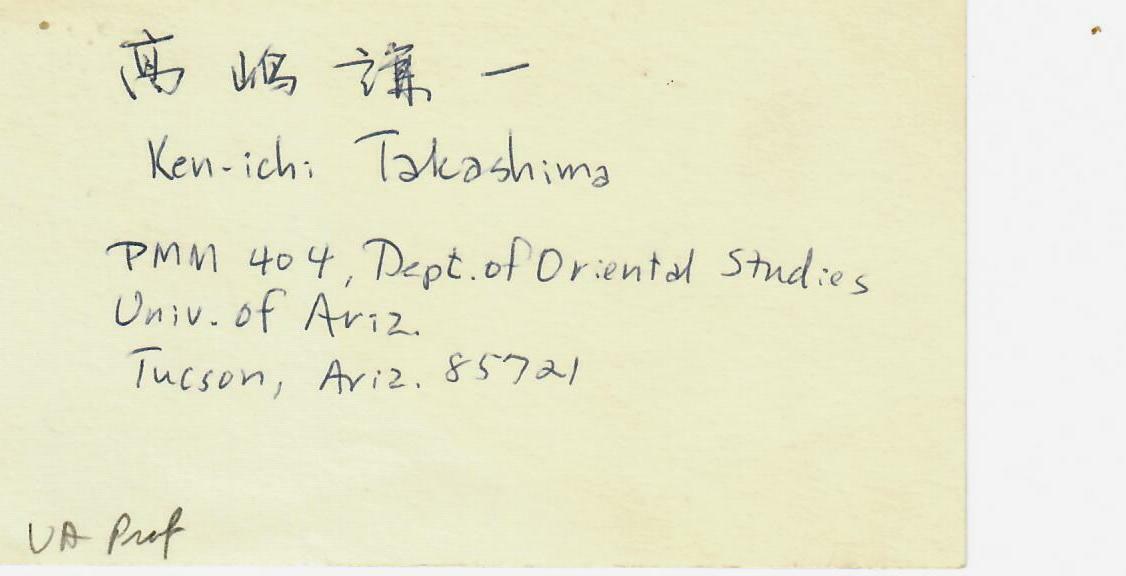 高嶋謙一
Ken-ichi Takashima
PMM 404, Dept. of Oriental Studies
Univ. of Ariz.
Tucson, Ariz. 85721
UA Prof